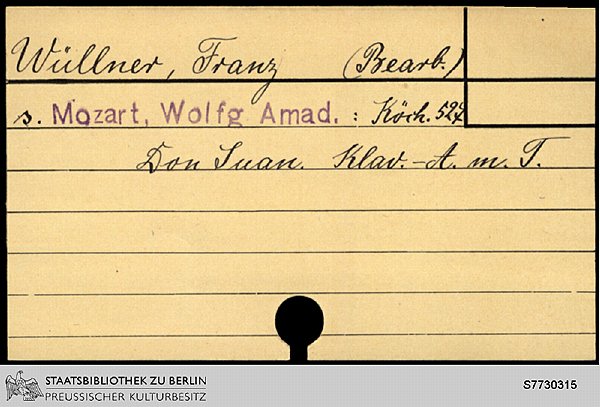 Wüllner, Franz (Bearb.)
s. Mozart, Wolfg Amad. : Köch. 527
Don Juan. Klav.-A. m. T.
STAATSBIBLIOTHEK ZU BERLIN
PREUSSISCHER KULTURBESITZ
S7730315